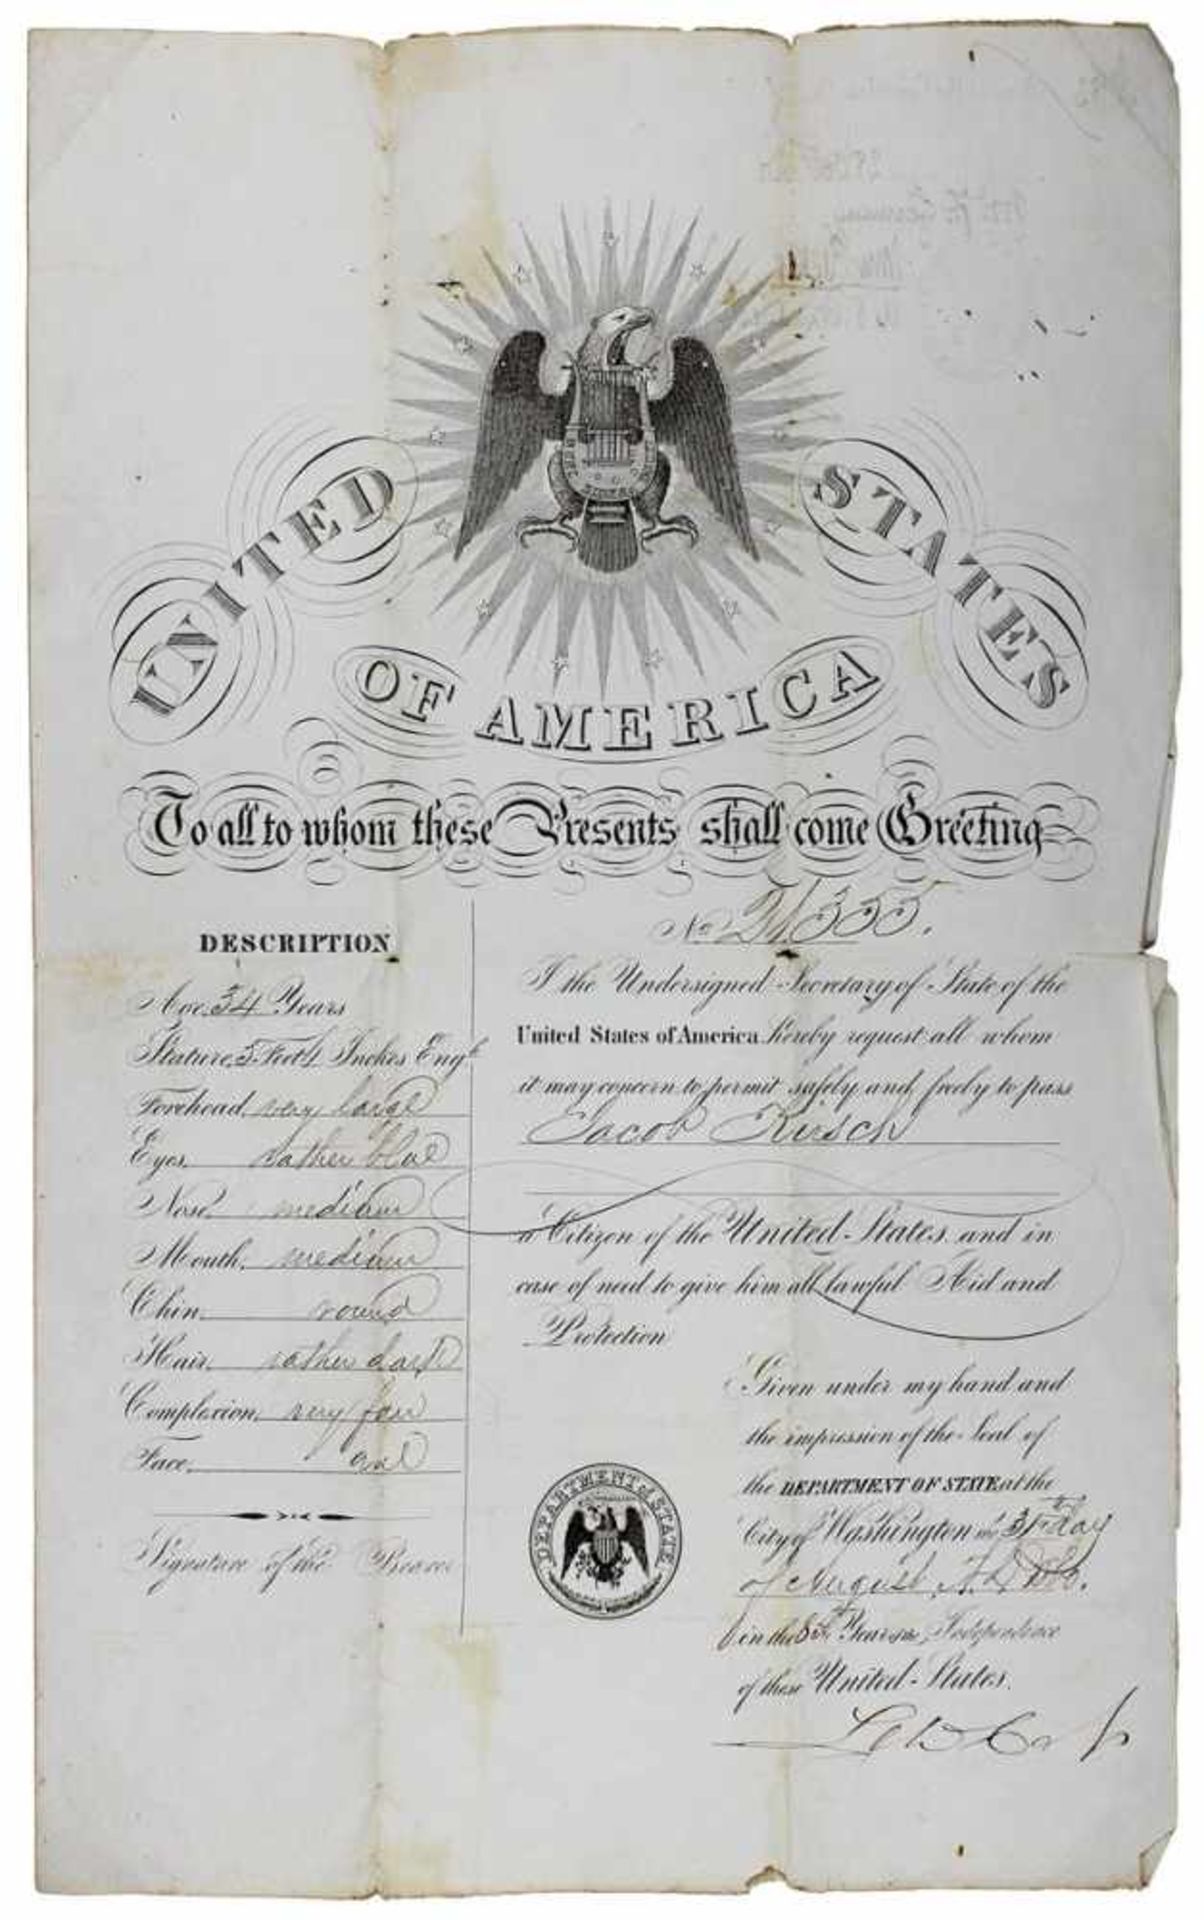 UNITED STATES
OF AMERICA
To all to whom these Presents shall come Greeting
DESCRIPTION
Age, 34 Years
Stature, 5 Feet 4 Inches Eng.
Forehead, very large
Eyes, rather blue
Nose, medium
Mouth, medium
Chin, round
Hair, rather dark
Complexion, very fair
Face, oval
Signature of the Bearer
No 355.
I the Undersigned Secretary of State of the
United States of America hereby request all whom
it may concern to permit safely and freely to pass
Jacob Kirsch
a Citizen of the United States and in
case of need to give him all lawful Aid and
Protection
Given under my hand and
the impression of the Seal of
the DEPARTMENT OF STATE at the
City of Washington the 31st day
of August A.D.
in the Year of the Independence
of these United States.
DEPARTMENT OF STATE